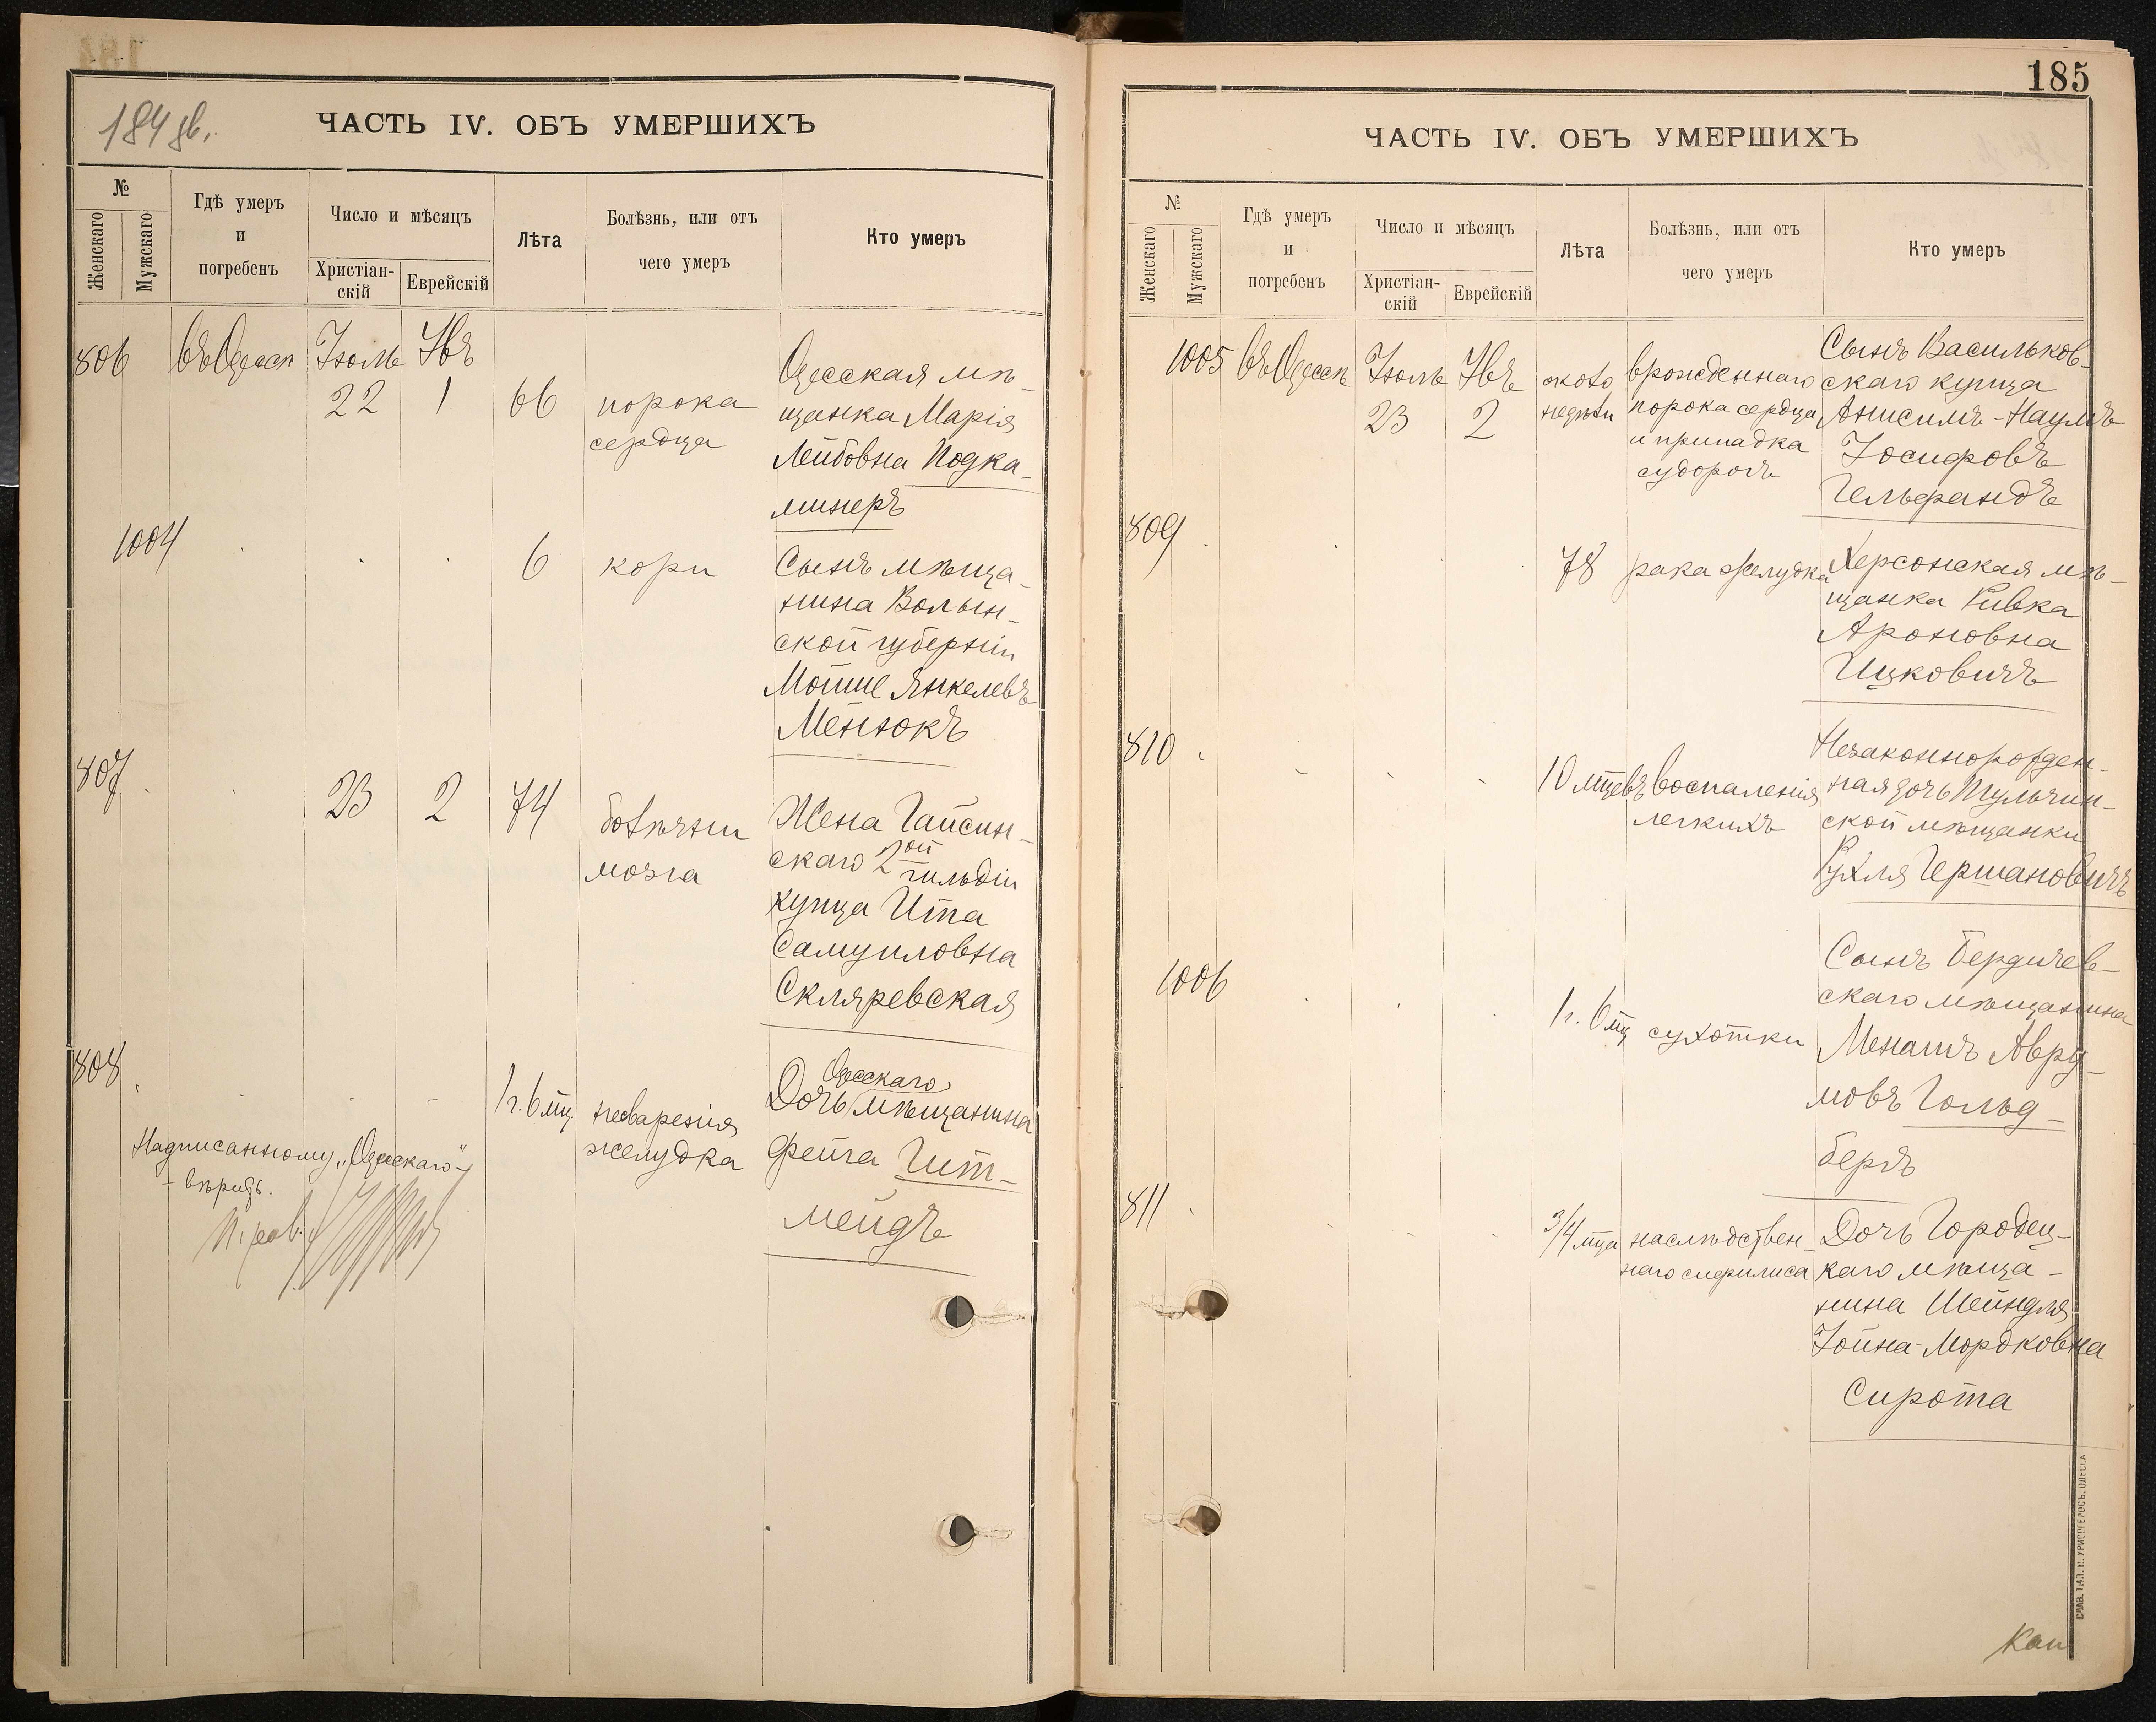 184 об.
ЧАСТЬ IV. ОБЪ УМЕРШИХЪ
№
Женскаго
Мужскаго
Гдѣ умеръ
и
погребенъ
Число и мѣсяцъ
Христіан-
скій
Еврейскій
Лѣта
Болѣзнь, или отъ
чего умеръ
Кто умеръ
806
въ Одессѣ
Іюль
22
Явъ
1
66
порока
сердца
Одесская мѣ-
щанка Марія
Лейбовна Подка-
минеръ
1004
6
кори
Сынъ мѣща-
нина Волын-
ской губерніи
Мошше Янкелевъ
Мейнзокъ
807
23
2
74
болѣзни
мозга
Жена Гайсин-
скаго 2ой гильдіи
купца Ита
Самуиловна
Скляревская
808
1 г. 6 мц
несваренія
желудка
Одесскаго
Дочь мѣщанина
Фейга Гит-
мейдъ
Надписанному „Одесскаго"
- вѣрить.
185
ЧАСТЬ IV. ОБЪ УМЕРШИХЪ
№
Женскаго
Мужскаго
Гдѣ умеръ
и
погребенъ
Число и мѣсяцъ
Христіан-
скій
Еврейскій
Лѣта
Болѣзнь, или отъ
чего умеръ
Кто умеръ
1005
въ Одессѣ
Іюль
23
Явъ
2
около
недѣли
врожденнаго
порока сердца
и припадка
судорогъ
Сынъ Васильков-
скаго купца
Анисимъ-Наумъ
Іосифовъ
Гельфандъ
809
78
рака желудка
Херсонская мѣ-
щанка Ривка
Ароновна
Ицковичъ
810
10 мцевъ
воспаленія
легкихъ
Незаконнорожден-
ная дочь Тульчин-
ской мѣщанки
Рухля Гершановичъ
1006
1 г. 6 мц
сухотки
Сынъ Бердичев-
скаго мѣщанина
Менашъ Авру-
мовъ Гольд-
бергъ
811
3/4 мца
наслѣдствен-
наго сифилиса
Дочь Городец-
каго мѣща-
нина Шейндля
Іойна-Мордковна
Сирота